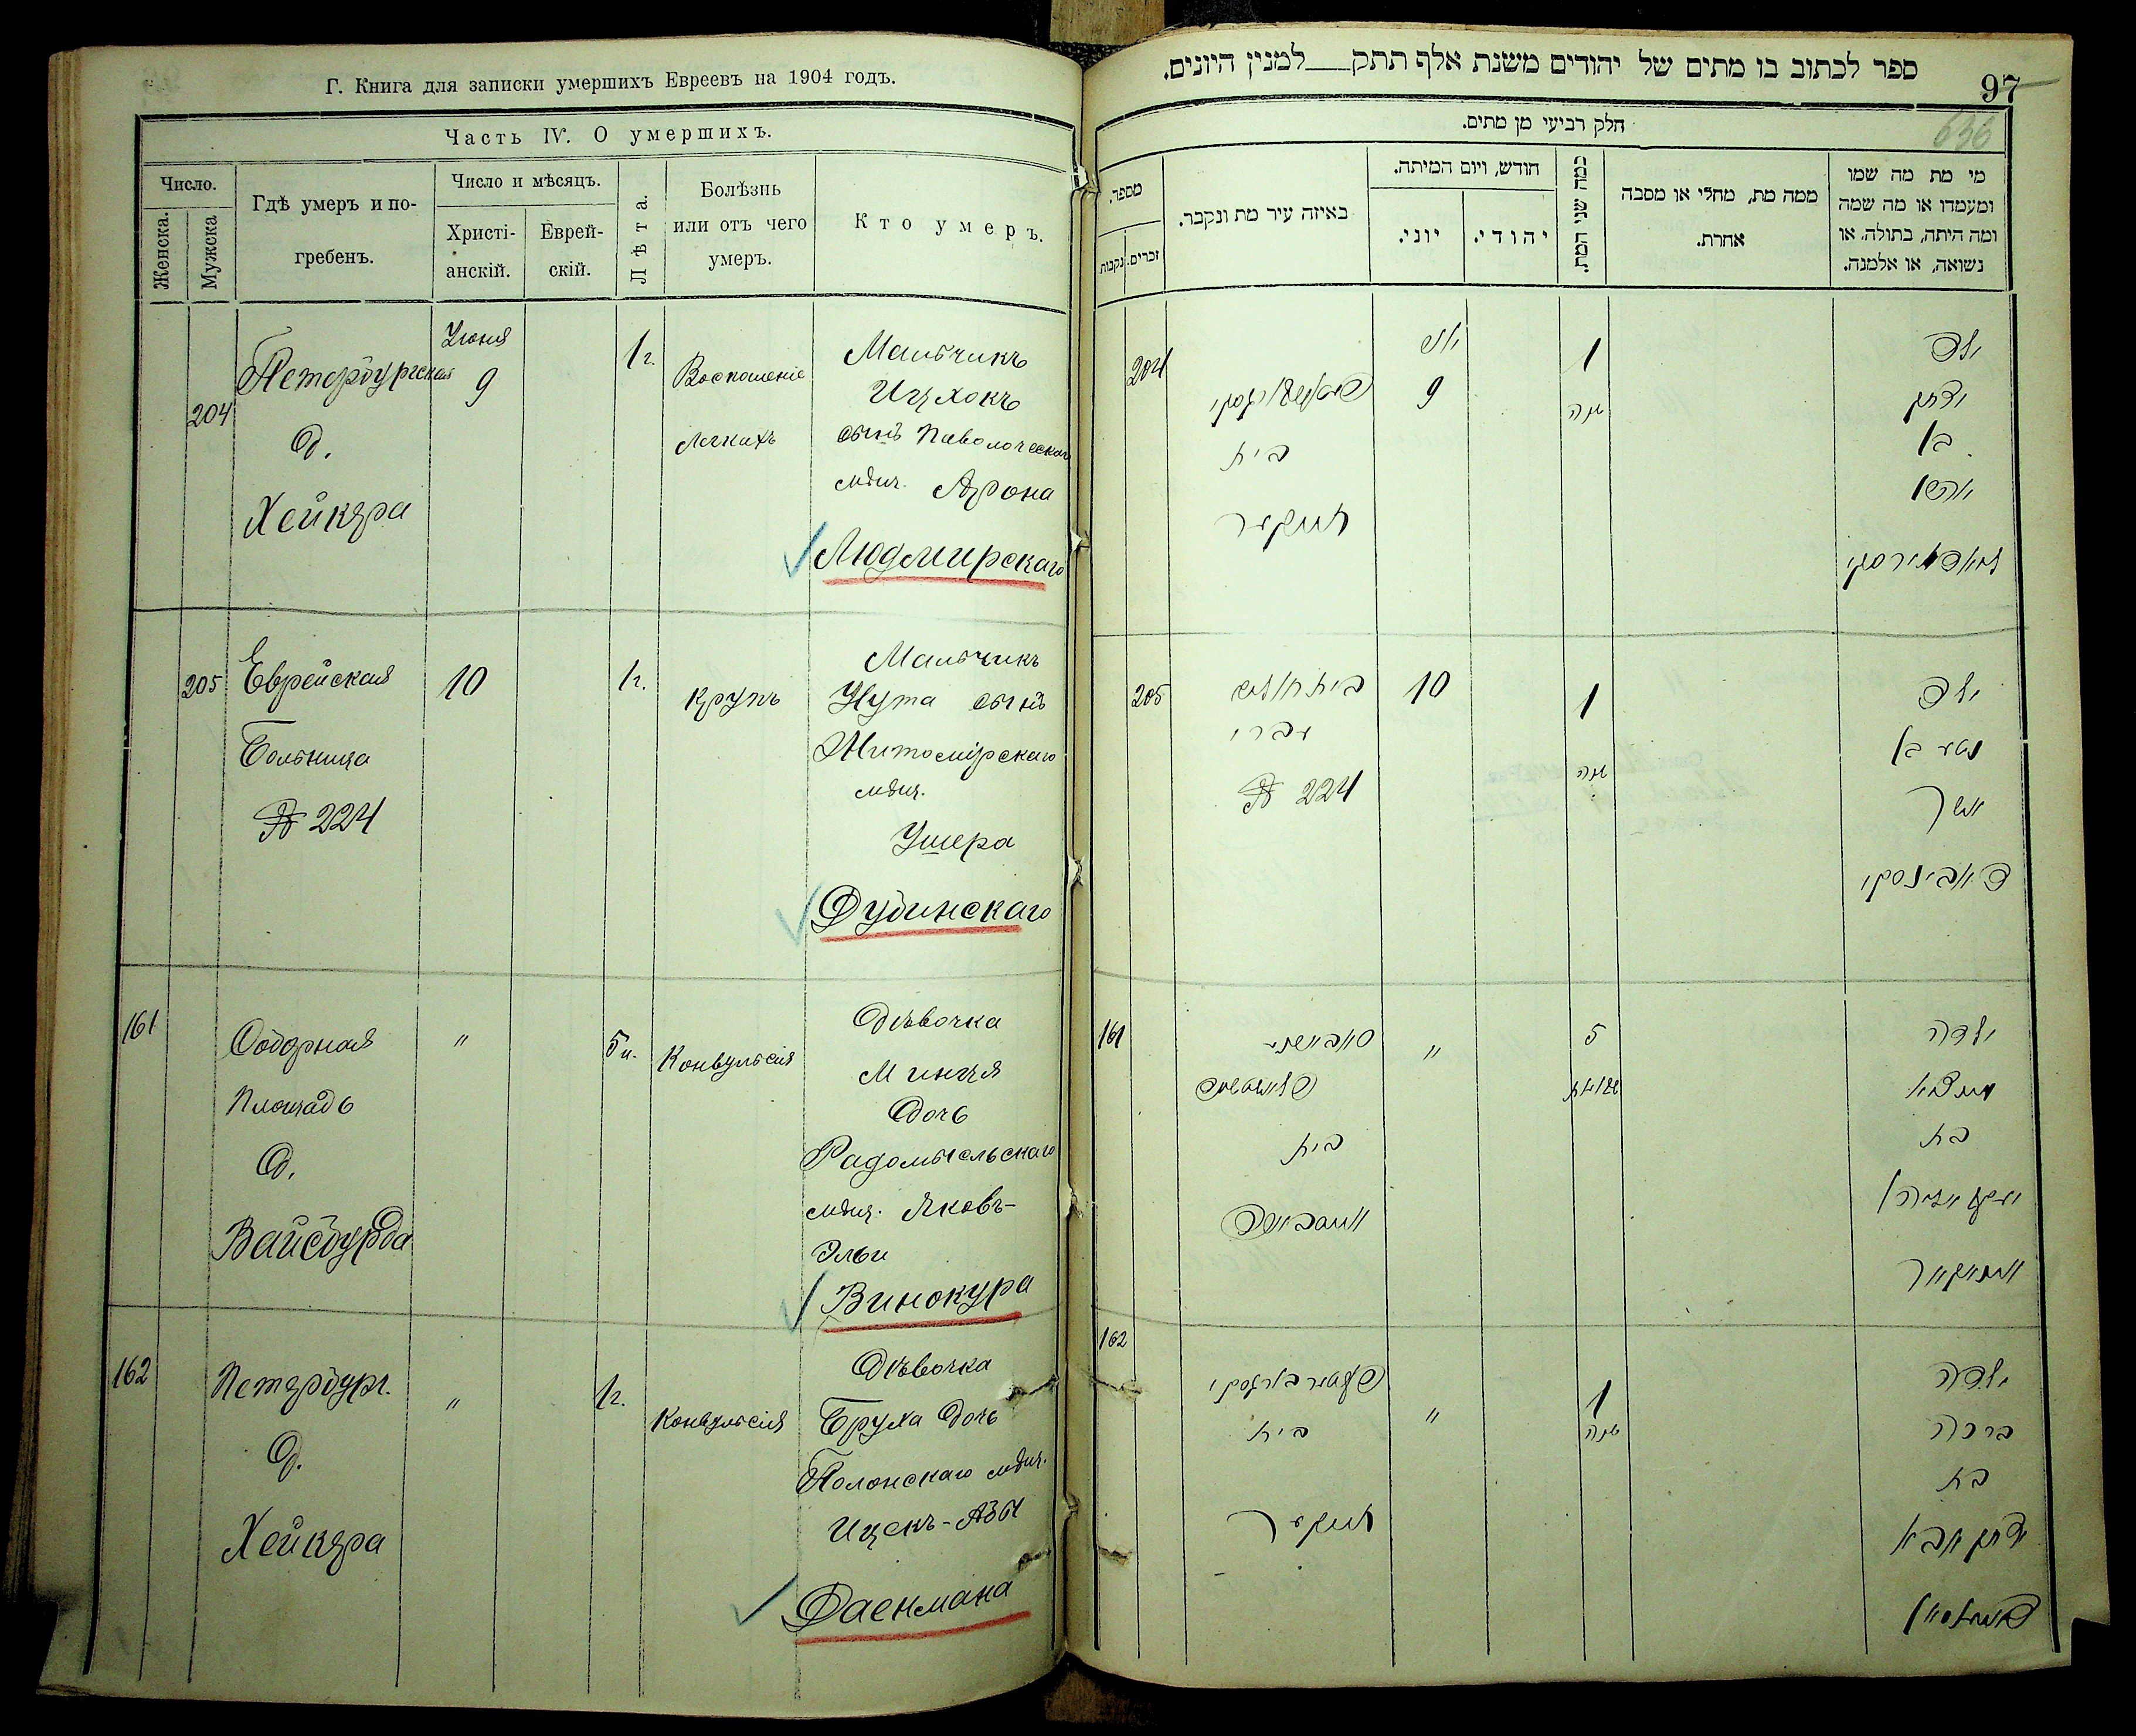 Г. Книга для записки умершихъ Евреевъ на 1904 годъ.
Часть IV. О умершихъ.
Число.
Женска.
Мужска
Гдѣ умеръ и по-
гребенъ.
Число и мѣсяцъ.
Христі-
анскій.
Еврей-
скій.
Лѣта.
Болѣзнь
или отъ чего
умеръ.
Кто умеръ.
204
Петербургская
д.
Хейкера
Июня
9
1 г.
Воспаленіе
легкихъ
Мальчикъ
Ицхокъ
сынъ Паволочскаго
мѣщ. Арона
Людмирскаго
205
Еврейская
Больница
№ 224
10
1 г.
Крупъ
Мальчикъ
Нута сынъ
Житомірскаго
мѣщ.
Ушера
Дубинскаго
161
Соборная
Площадь
д.
Вайсбурда
"
5 н.
Конвульсія
Дѣвочка
Минця
дочь
Радомысльскаго
мѣщ. Яковъ-
Эльи
Винокура
162
Петербург.
д.
Хейкера
"
1 г.
Конвульсія
Дѣвочка
Бруха дочь
Полонскаго мѣщ.
Ицекъ-Абы
Фаенмана
ספר לכתוב בו מתים של יהודים משנת אלף תתק___למנין היונים.
97
636
חלק רביעי מן מתים.
מספר.
נקבות
זכרים.
באיזה עיר מת ונקבר.
חודש, ויום המיתה.
יוני.
יהודי.
כמה שני המת.
ממה מת, מחלי או מסבה
אחרת.
מי מת מה שמו
ומעמדו או מה שמה
ומה היתה, בתולה. או
נשואה, או אלמנה.
204
בית
חייקער
9
1
שנה
ילד
יצחק
בן
אהרן
לודמירסקי
205
בית חולים
עברי
№ 224
10
1
שנה
ילד
נטע בן
אשר
דובינסקי
161
בית
"
5
שבועות
ילדה
מינציא
בת
יעקב אליהו
ווינאקור
162
פעטערבורגסקי
בית
חייקער
"
1
שנה
ילדה
ברכה
בת
יצחק אבא
פיינמאן